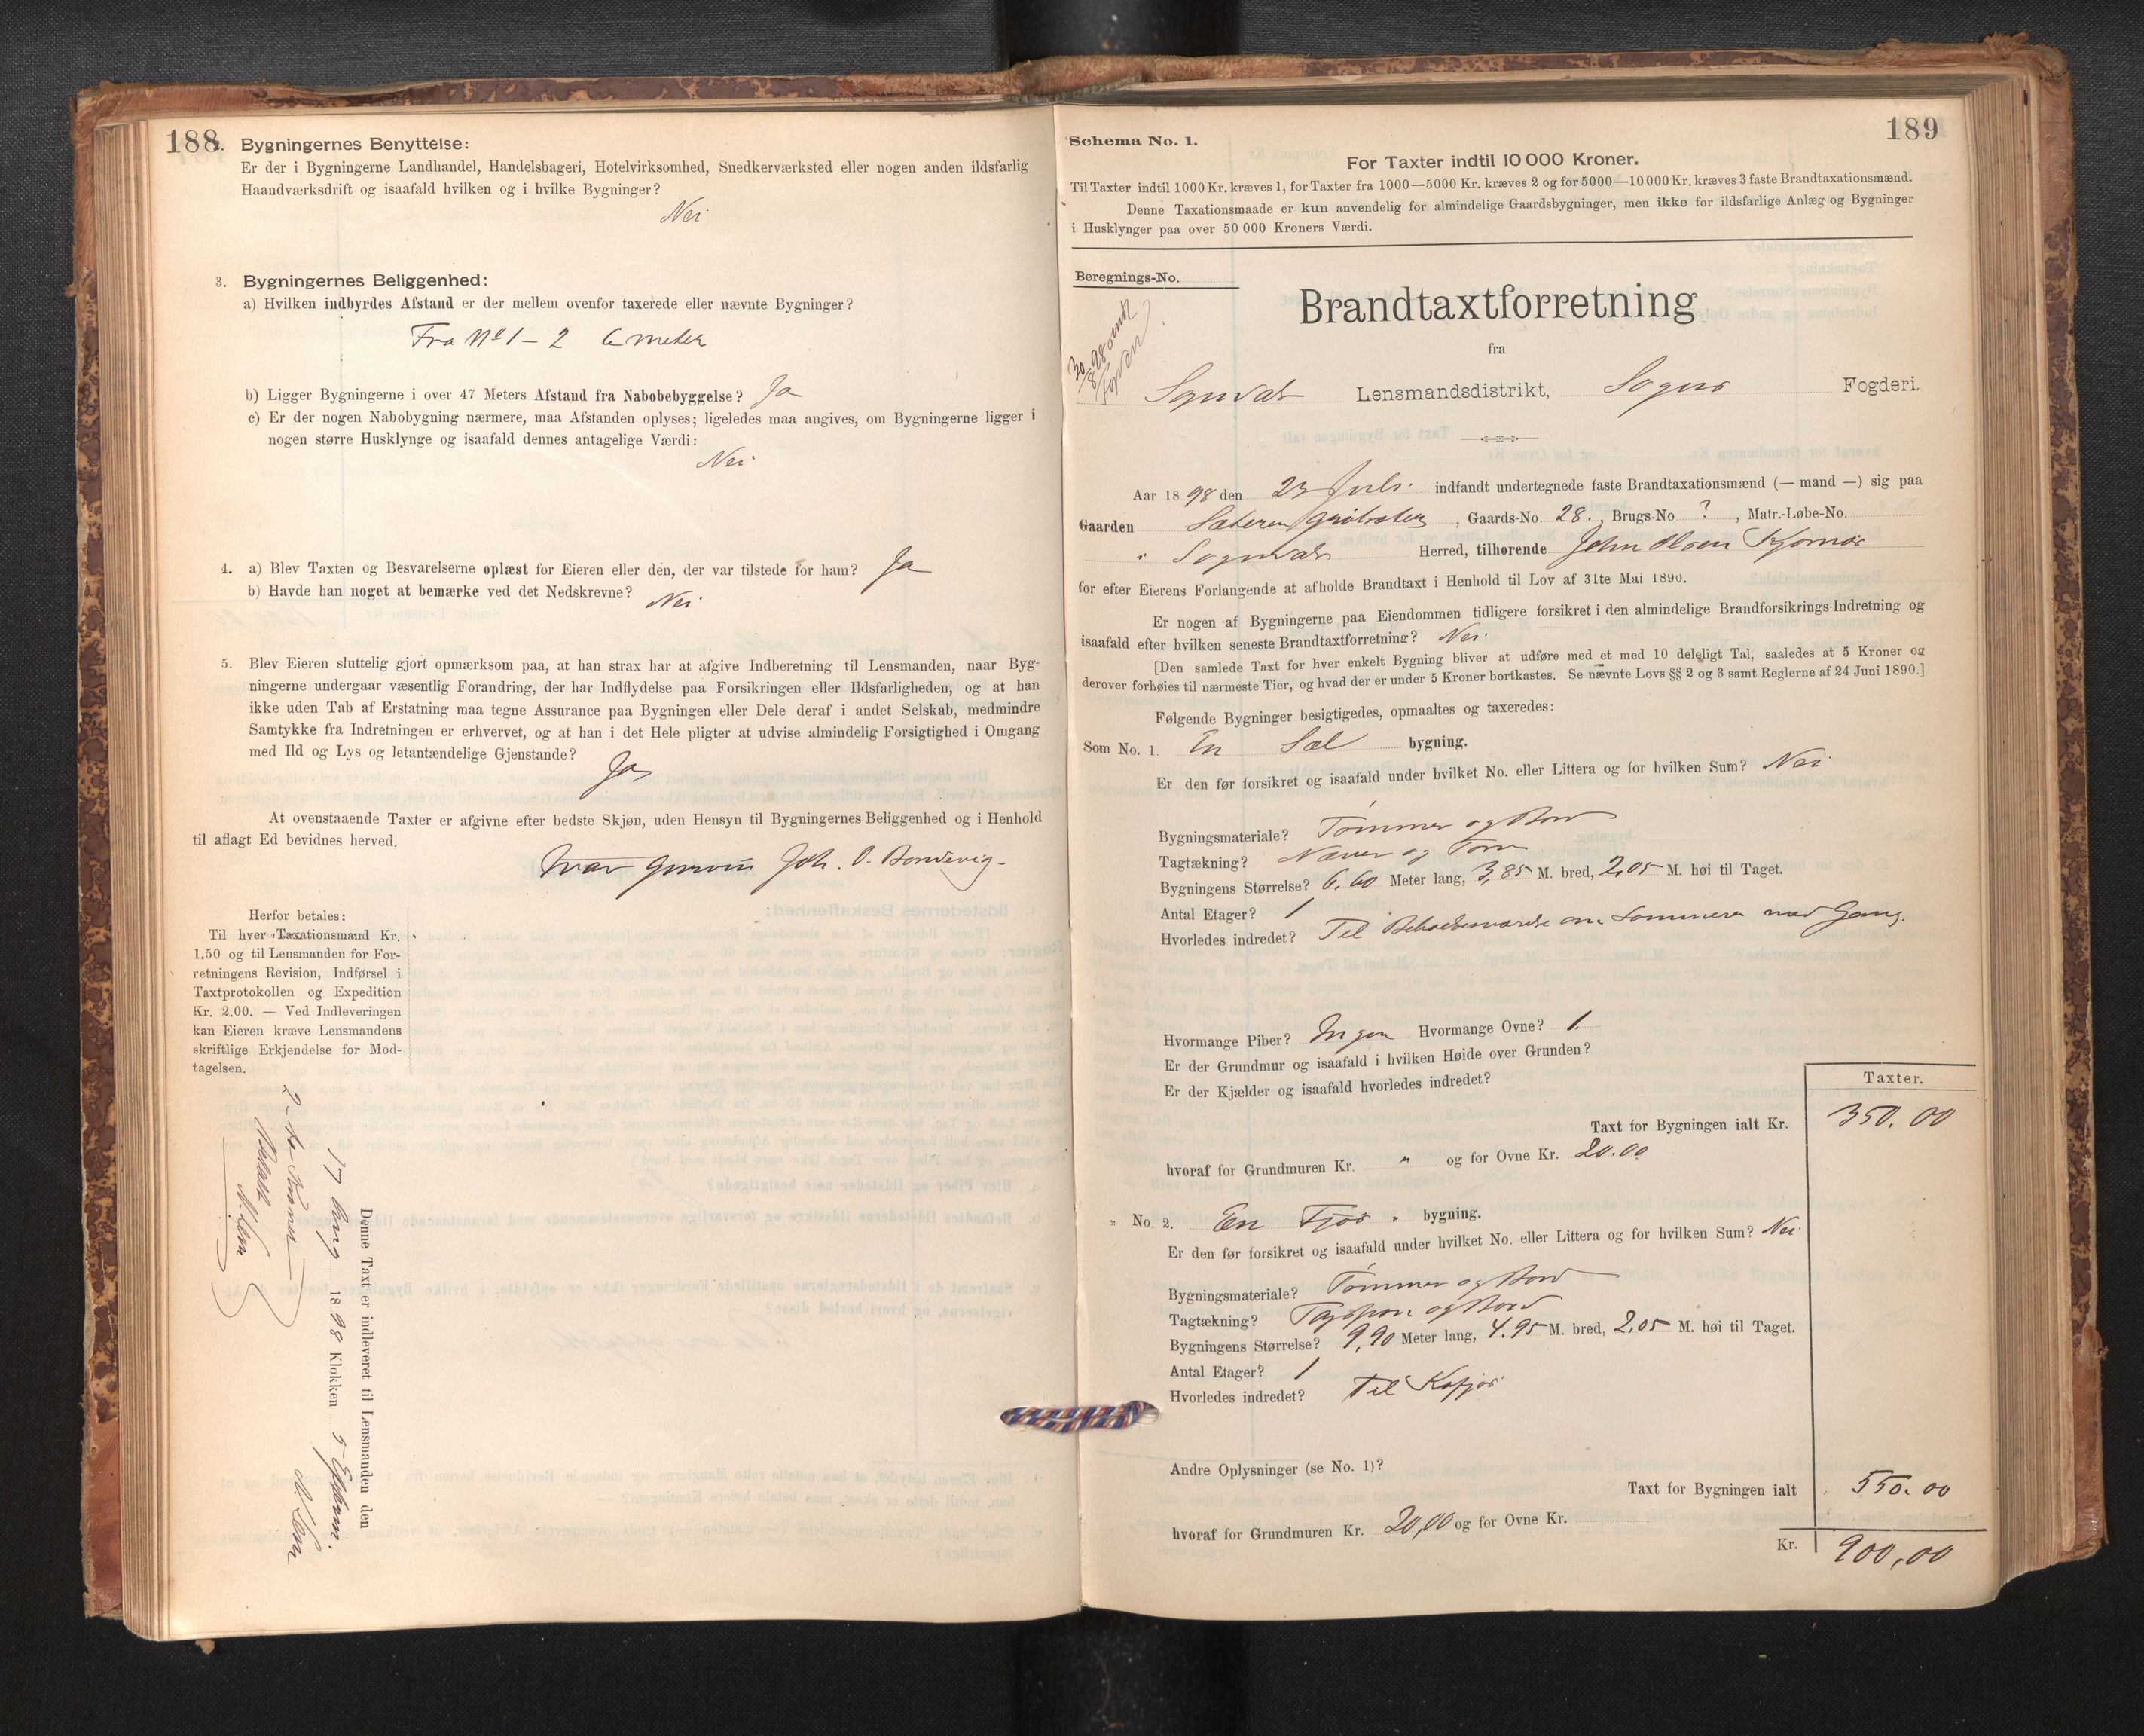 188
2. Bygningernes Benyttelse:
Er der i Bygningerne Landhandel, Handelsbageri, Hotelvirksomhed, Snedkerværksted eller nogen anden ildsfarlig
Haandværksdrift og isaafald hvilken og i hvilke Bygninger?
Nei
3. Bygningernes Beliggenhed:
a) Hvilken indbyrdes Afstand er der mellem ovenfor taxerede eller nævnte Bygninger?
Fra No 1 - 2 6 meter
b) Ligger Bygningerne i over 47 Meters Afstand fra Nabobebyggelse? Ja
c) Er der nogen Nabobygning nærmere, maa Afstanden oplyses; ligeledes maa angives, om Bygningerne ligger i
nogen større Husklynge og isaafald dennes antagelige Værdi:
Nei
4. a) Blev Taxten og Besvarelserne oplæst for Eieren eller den, der var tilstede for ham? Ja
b) Havde han noget at bemærke ved det Nedskrevne? Nei
5. Blev Eieren sluttelig gjort opmærksom paa, at han strax har at afgive Indberetning til Lensmanden, naar Byg-
ningerne undergaar væsentlig Forandring, der har Indflydelse paa Forsikringen eller Ildsfarligheden, og at han
ikke uden Tab af Erstatning maa tegne Assurance paa Bygningen eller Dele deraf i andet Selskab, medmindre
Samtykke fra Indretningen er erhvervet, og at han i det Hele pligter at udvise almindelig Forsigtighed i Omgang
med Ild og Lys og letantændelige Gjenstande?
Ja
At ovenstaaende Taxter er afgivne efter bedste Skjøn, uden Hensyn til Bygningernes Beliggenhed og i Henhold
til aflagt Ed bevidnes herved.
Ivar Joh. O.
Herfor betales:
Til hver Taxationsmand Kr.
1.50 og til Lensmanden for For-
retningens Revision, Indførsel i
Taxtprotokollen og Expedition
Kr. 2.00. — Ved Indleveringen
kan Eieren kræve Lensmandens
skriftlige Erkjendelse for Mod-
tagelsen.
Denne Taxt er indleveret til Lensmanden den
17 Aug 1898 Klokken 5 Efterm.
2 - to Kroner
Betalt
189
Schema No. 1.
For Taxter indtil 10 000 Kroner.
Til Taxter indtil 1000 Kr. kræves 1, for Taxter fra 1000—5000 Kr. kræves 2 og for 5000—10 000 Kr. kræves 3 faste Brandtaxationsmænd.
Denne Taxationsmaade er kun anvendelig for almindelige Gaardsbygninger, men ikke for ildsfarlige Anlæg og Bygninger
i Husklynger paa over 50 000 Kroners Værdi.
Beregnings-No.
30/8 98 sendt
Fogden
Brandtaxtforretning
fra
Sogndal Lensmandsdistrikt, Sogns Fogderi.
Aar 1898 den 23 Juli indfandt undertegnede faste Brandtaxationsmænd (— mand —) sig paa
Gaarden Sæteren , Gaards-No. 28. , Brugs-No ? , Matr.-Løbe-No.
i Sogndal Herred, tilhørende John Olsen
for efter Eierens Forlangende at afholde Brandtaxt i Henhold til Lov af 31te Mai 1890.
Er nogen af Bygningerne paa Eiendommen tidligere forsikret i den almindelige Brandforsikrings-Indretning og
isaafald efter hvilken seneste Brandtaxtforretning? Nei
[Den samlede Taxt for hver enkelt Bygning bliver at udføre med et med 10 deleligt Tal, saaledes at 5 Kroner og
derover forhøies til nærmeste Tier, og hvad der er under 5 Kroner bortkastes. Se nævnte Lovs §§ 2 og 3 samt Reglerne af 24 Juni 1890.]
Følgende Bygninger besigtigedes, opmaaltes og taxeredes:
Som No. 1. En Sæl bygning.
Er den før forsikret og isaafald under hvilket No. eller Littera og for hvilken Sum? Nei
Bygningsmateriale? Tømmer og Bord
Tagtækning? Næver og Torv
Bygningens Størrelse? 6,60 Meter lang, 3,85 M. bred, 2,05 M. høi til Taget.
Antal Etager? 1
Hvorledes indredet? Til Beboelsesværelse om Sommeren med Gang.
Hvormange Piber? Ingen Hvormange Ovne? 1.
Er der Grundmur og isaafald i hvilken Høide over Grunden?
Er der Kjælder og isaafald hvorledes indredet?
Taxter.
Taxt for Bygningen ialt Kr. 350.00
hvoraf for Grundmuren Kr. " og for Ovne Kr. 20.00
" No. 2. En Fjøs bygning.
Er den før forsikret og isaafald under hvilket No. eller Littera og for hvilken Sum? Nei
Bygningsmateriale? Tømmer og Bord
Tagtækning? Tagspon og Bord
Bygningens Størrelse? 9,90 Meter lang, 4.95 M. bred, 2,05 M. høi til Taget.
Antal Etager? 1
Hvorledes indredet? Til Kofjøs
Andre Oplysninger (se No. 1)?
Taxt for Bygningen ialt 550.00
hvoraf for Grundmuren Kr. 20,00 og for Ovne Kr.
Kr. 900,00